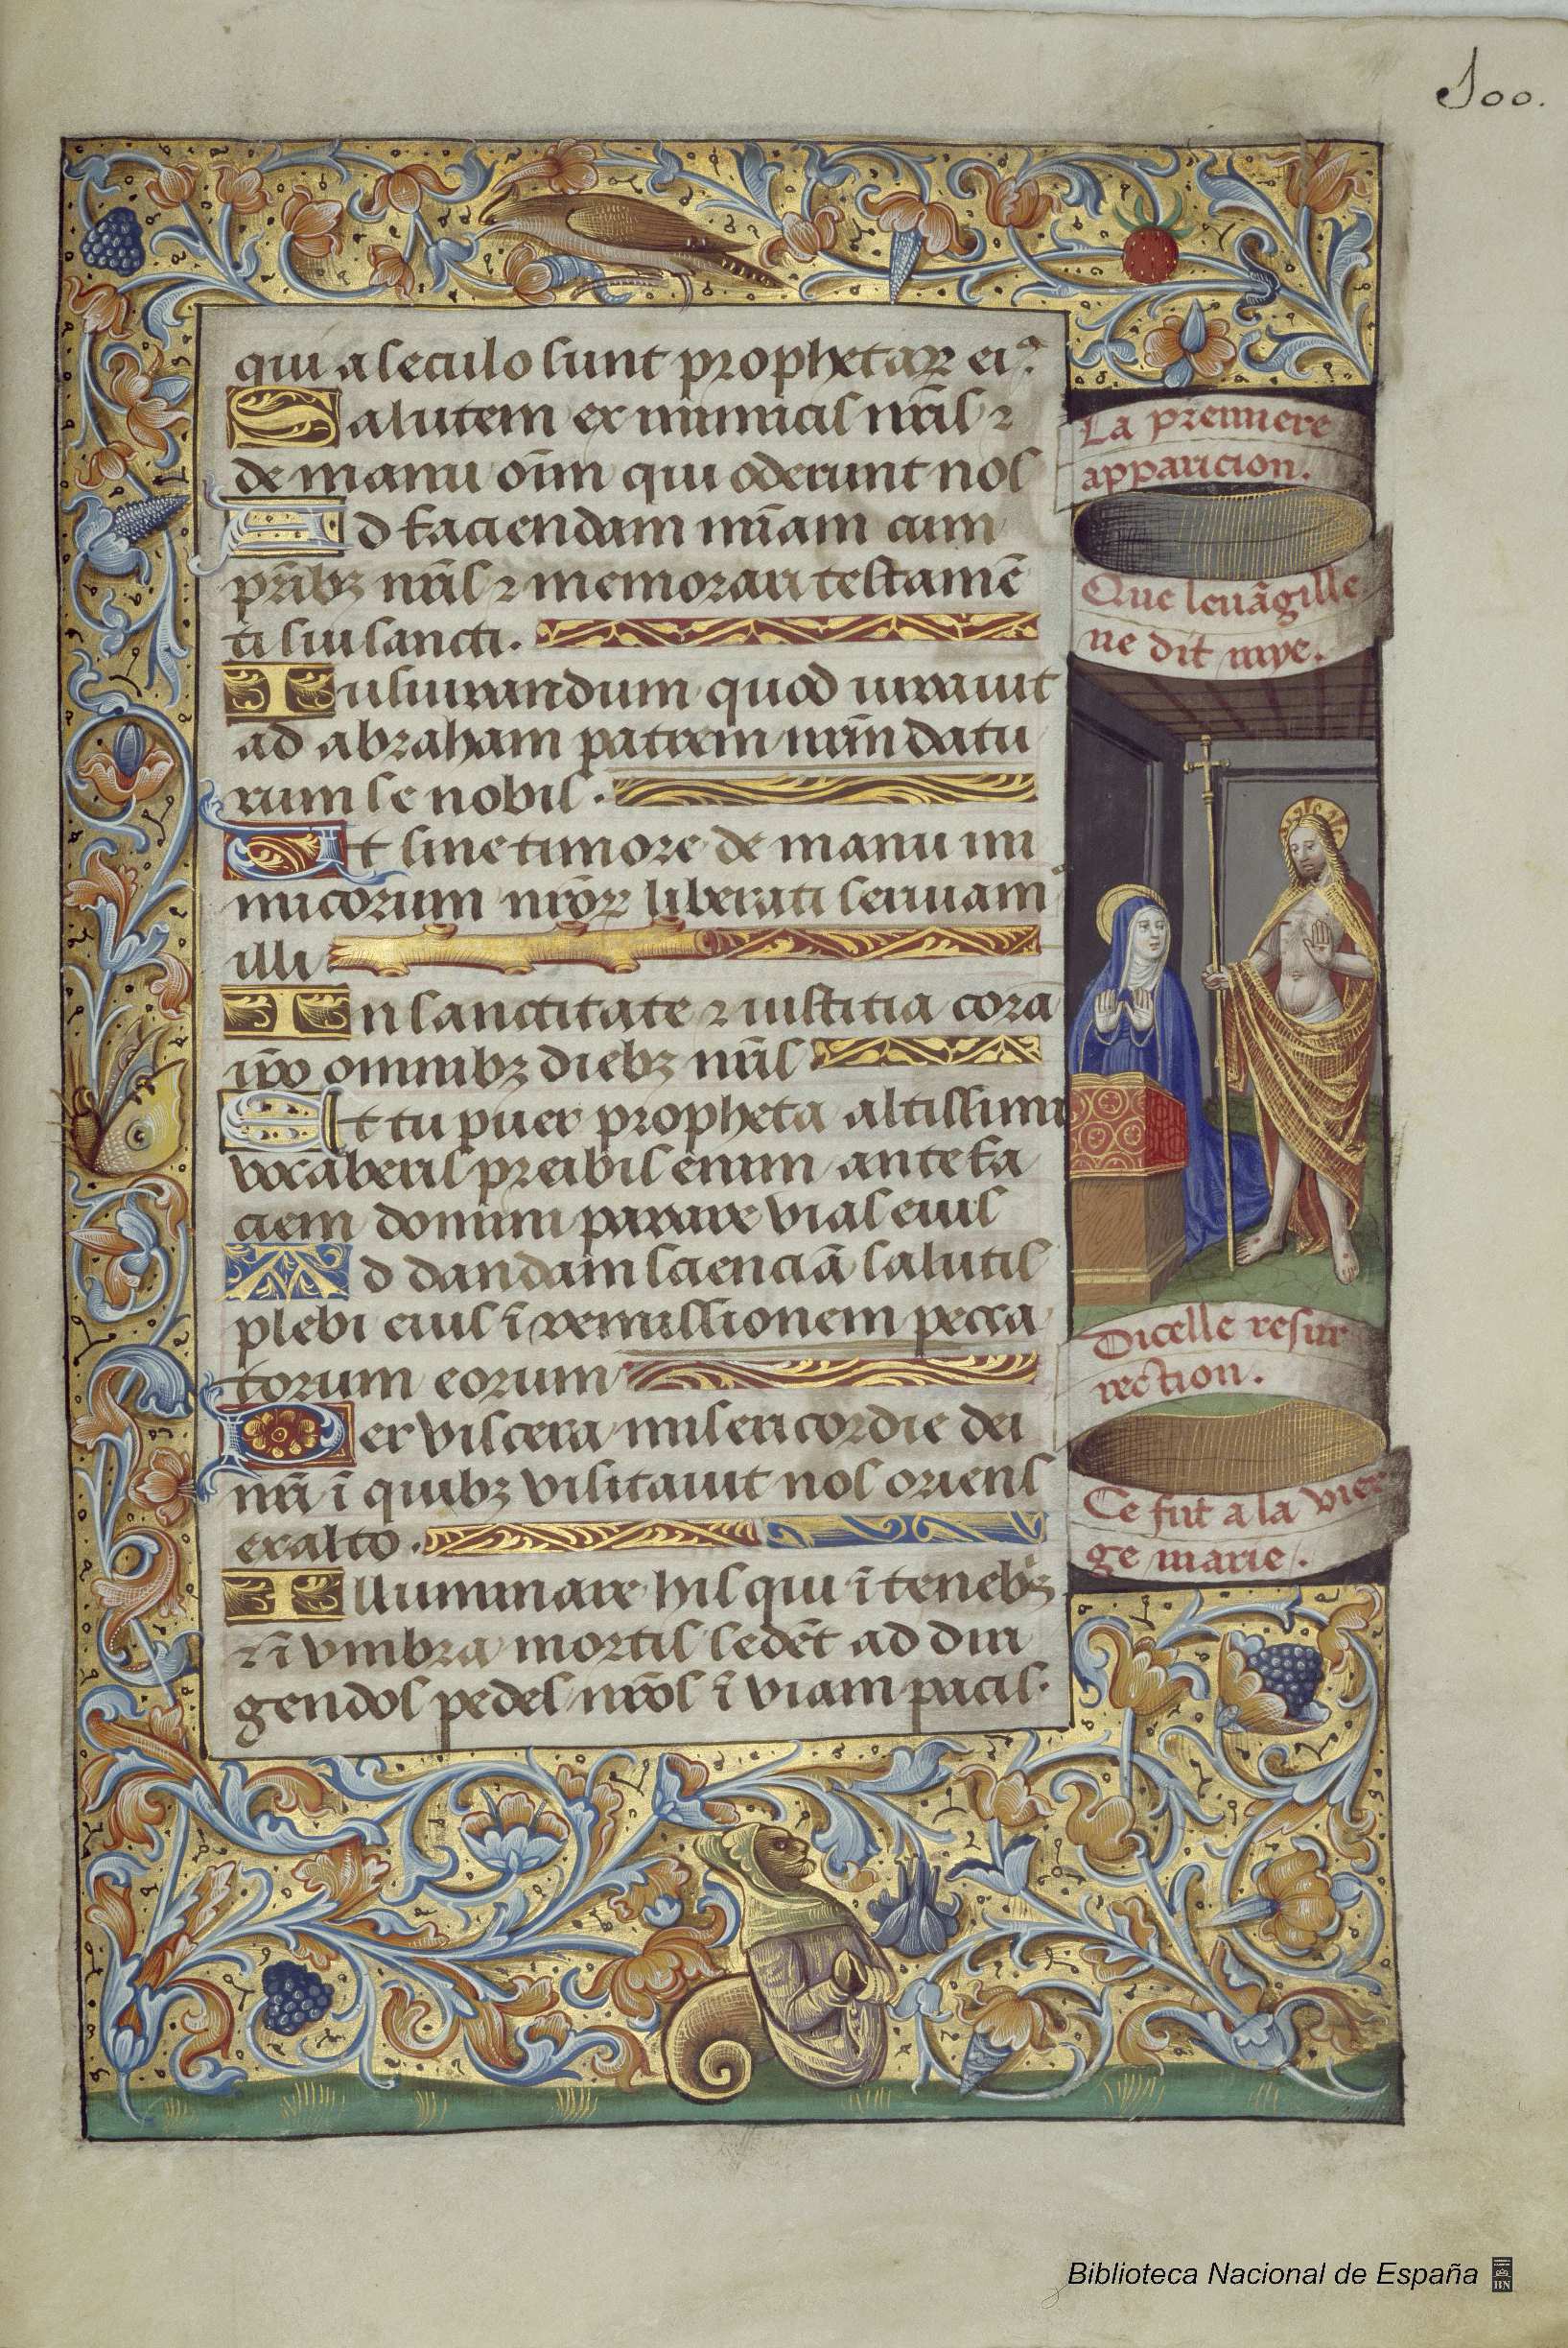 100.
qui a seculo sunt prophetaꝝ eiꝰ
Salutem ex inimicis nr̃is ⁊
de manu oĩm qui oderunt nos
Ad faciendam mĩam cum
pr̃ibꝫ nr̃is ⁊ memorari testamẽ
ti sui sancti.
Iusiurandum quod iurauit
ad abraham patrem nrm̃ datu
rum se nobis.
Et sine timore de manu ini
micorum nroꝝ̃ liberati seruiam̕
illi
In sanctitate ⁊ iustitia corã
ip̃o omnibꝫ diebꝫ nr̃is
Et tu puer propheta altissimi
vocaberis preibis enim ante fa
ciem domini parare vias eius
Ad dandam scienciã salutis
plebi eius ĩ remissionem pecca
torum eorum
Per viscera misericordie dei
nr̃i ĩ quibꝫ visitauit nos oriens
ex alto.
Illuminare his qui ĩ tenebꝫ
⁊ ĩ vmbra mortis sedẽt ad diri
gendos pedes nr̃os ĩ viam pacis.
La premiere
apparicion.
Que leuãgille
ne dit mye.
Dicelle resur
rection.
Ce fut a la vier
ge marie.
Biblioteca Nacional de España
BN